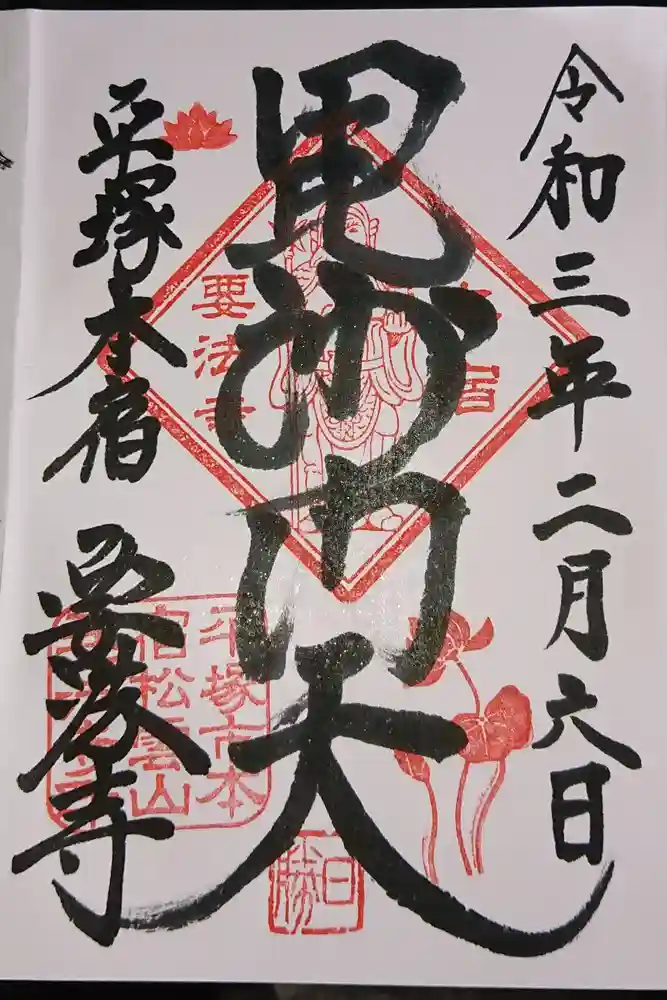 令和三年二月六日
毘沙門天
平塚本宿
要法寺
要法寺
平塚市本
宿松雲山
日勝